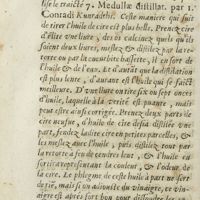 life le traicté 7. Medullæ distillat. par 1.
Conradi Kunradthi. Ceste maniere qui suit
de tirer l'huile de cire est plus belle. Prenez
cire d'elite vne liure, des os calcinez
soient deux liures, meslez, & distilez par la re-
torte ou par la cucurbite bassete, il en sort de
l'huile & de l'eau. Et d'autãt que la distilation
est plus lente, d'autant est l'huile qui se faict
meilleure. D'vne liure on tire six ou sept onces
d'huile, laquelle à la verité est puante, mais
peut estre ainsi corrigée. Prenez deux parts de
cire neufue, d'huile de cire desia distilée vne
partie, fendez ladite cire en petites parcelles, &
les meslez auec l'huile, puis distilez tout par
la retorte à feu de cendres lent, & l'huile en
sortira representant la couleur, & l'odeur de
la cire. Le phlegme de ceste huile à part ne sert
de riẽ, mais si on adiouste du vinaigre, ce vin-